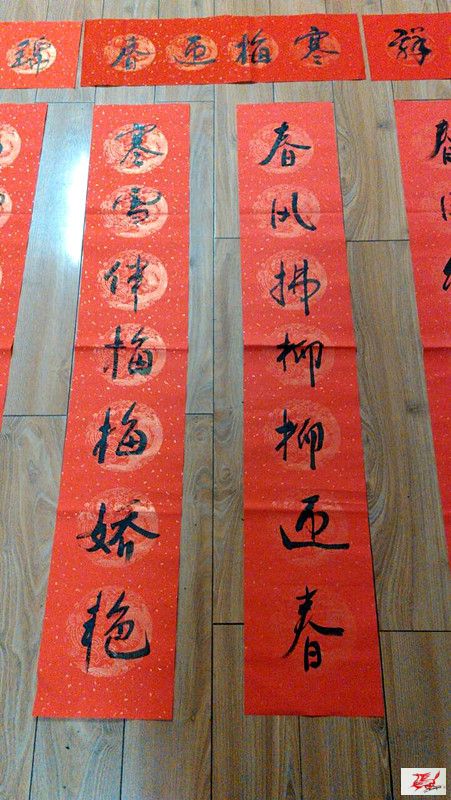 祥
寒梅迎春
锦
春风
春风拂柳柳迎春
寒雪伴梅梅娇艳